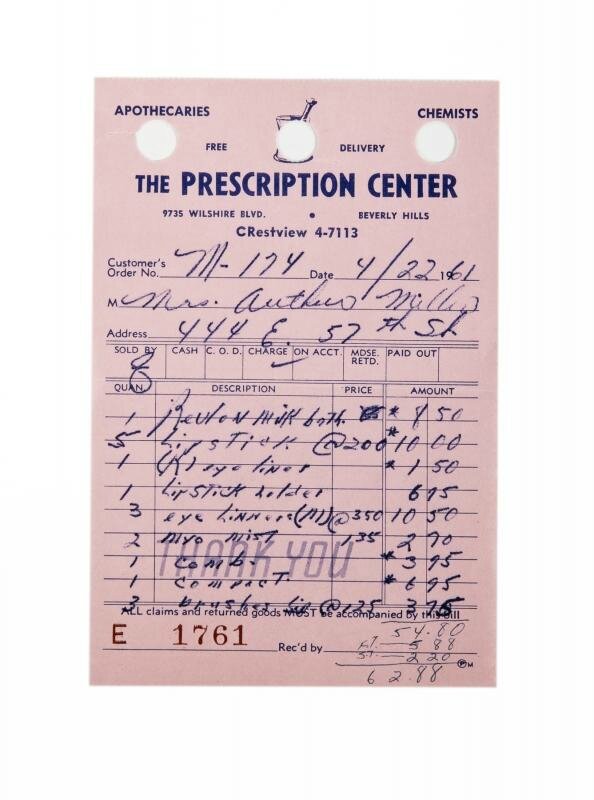 APOTHECARIES CHEMISTS
FREE DELIVERY
THE PRESCRIPTION CENTER
9735 WILSHIRE BLVD. • BEVERLY HILLS
CRestview 4-7113
Customer's
Order No. M-174 Date 4/22 1961
M Mrs. Arthur Miller
Address 444 E. 57th St
SOLD BY CASH C. O. D. CHARGE ON ACCT. MDSE. RETD. PAID OUT
QUAN. DESCRIPTION PRICE AMOUNT
1 Revlon milk bath * 8 50
5 Lipstick @ 200 * 10 00
1 (K) eye liner * 1 50
1 Lipstick holder 6 95
3 eye linners (M) @ 350 10 50
2 Myo Mist 1,35 2 70
THANK YOU
1 comb. * 3 95
1 compact. * 6 95
3 Brushes lip @ 125 3 75
ALL claims and returned goods MUST be accompanied by this bill
54.80
E 1761 Rec'd by F.T. 5 88
S.T. 2 20
62.88